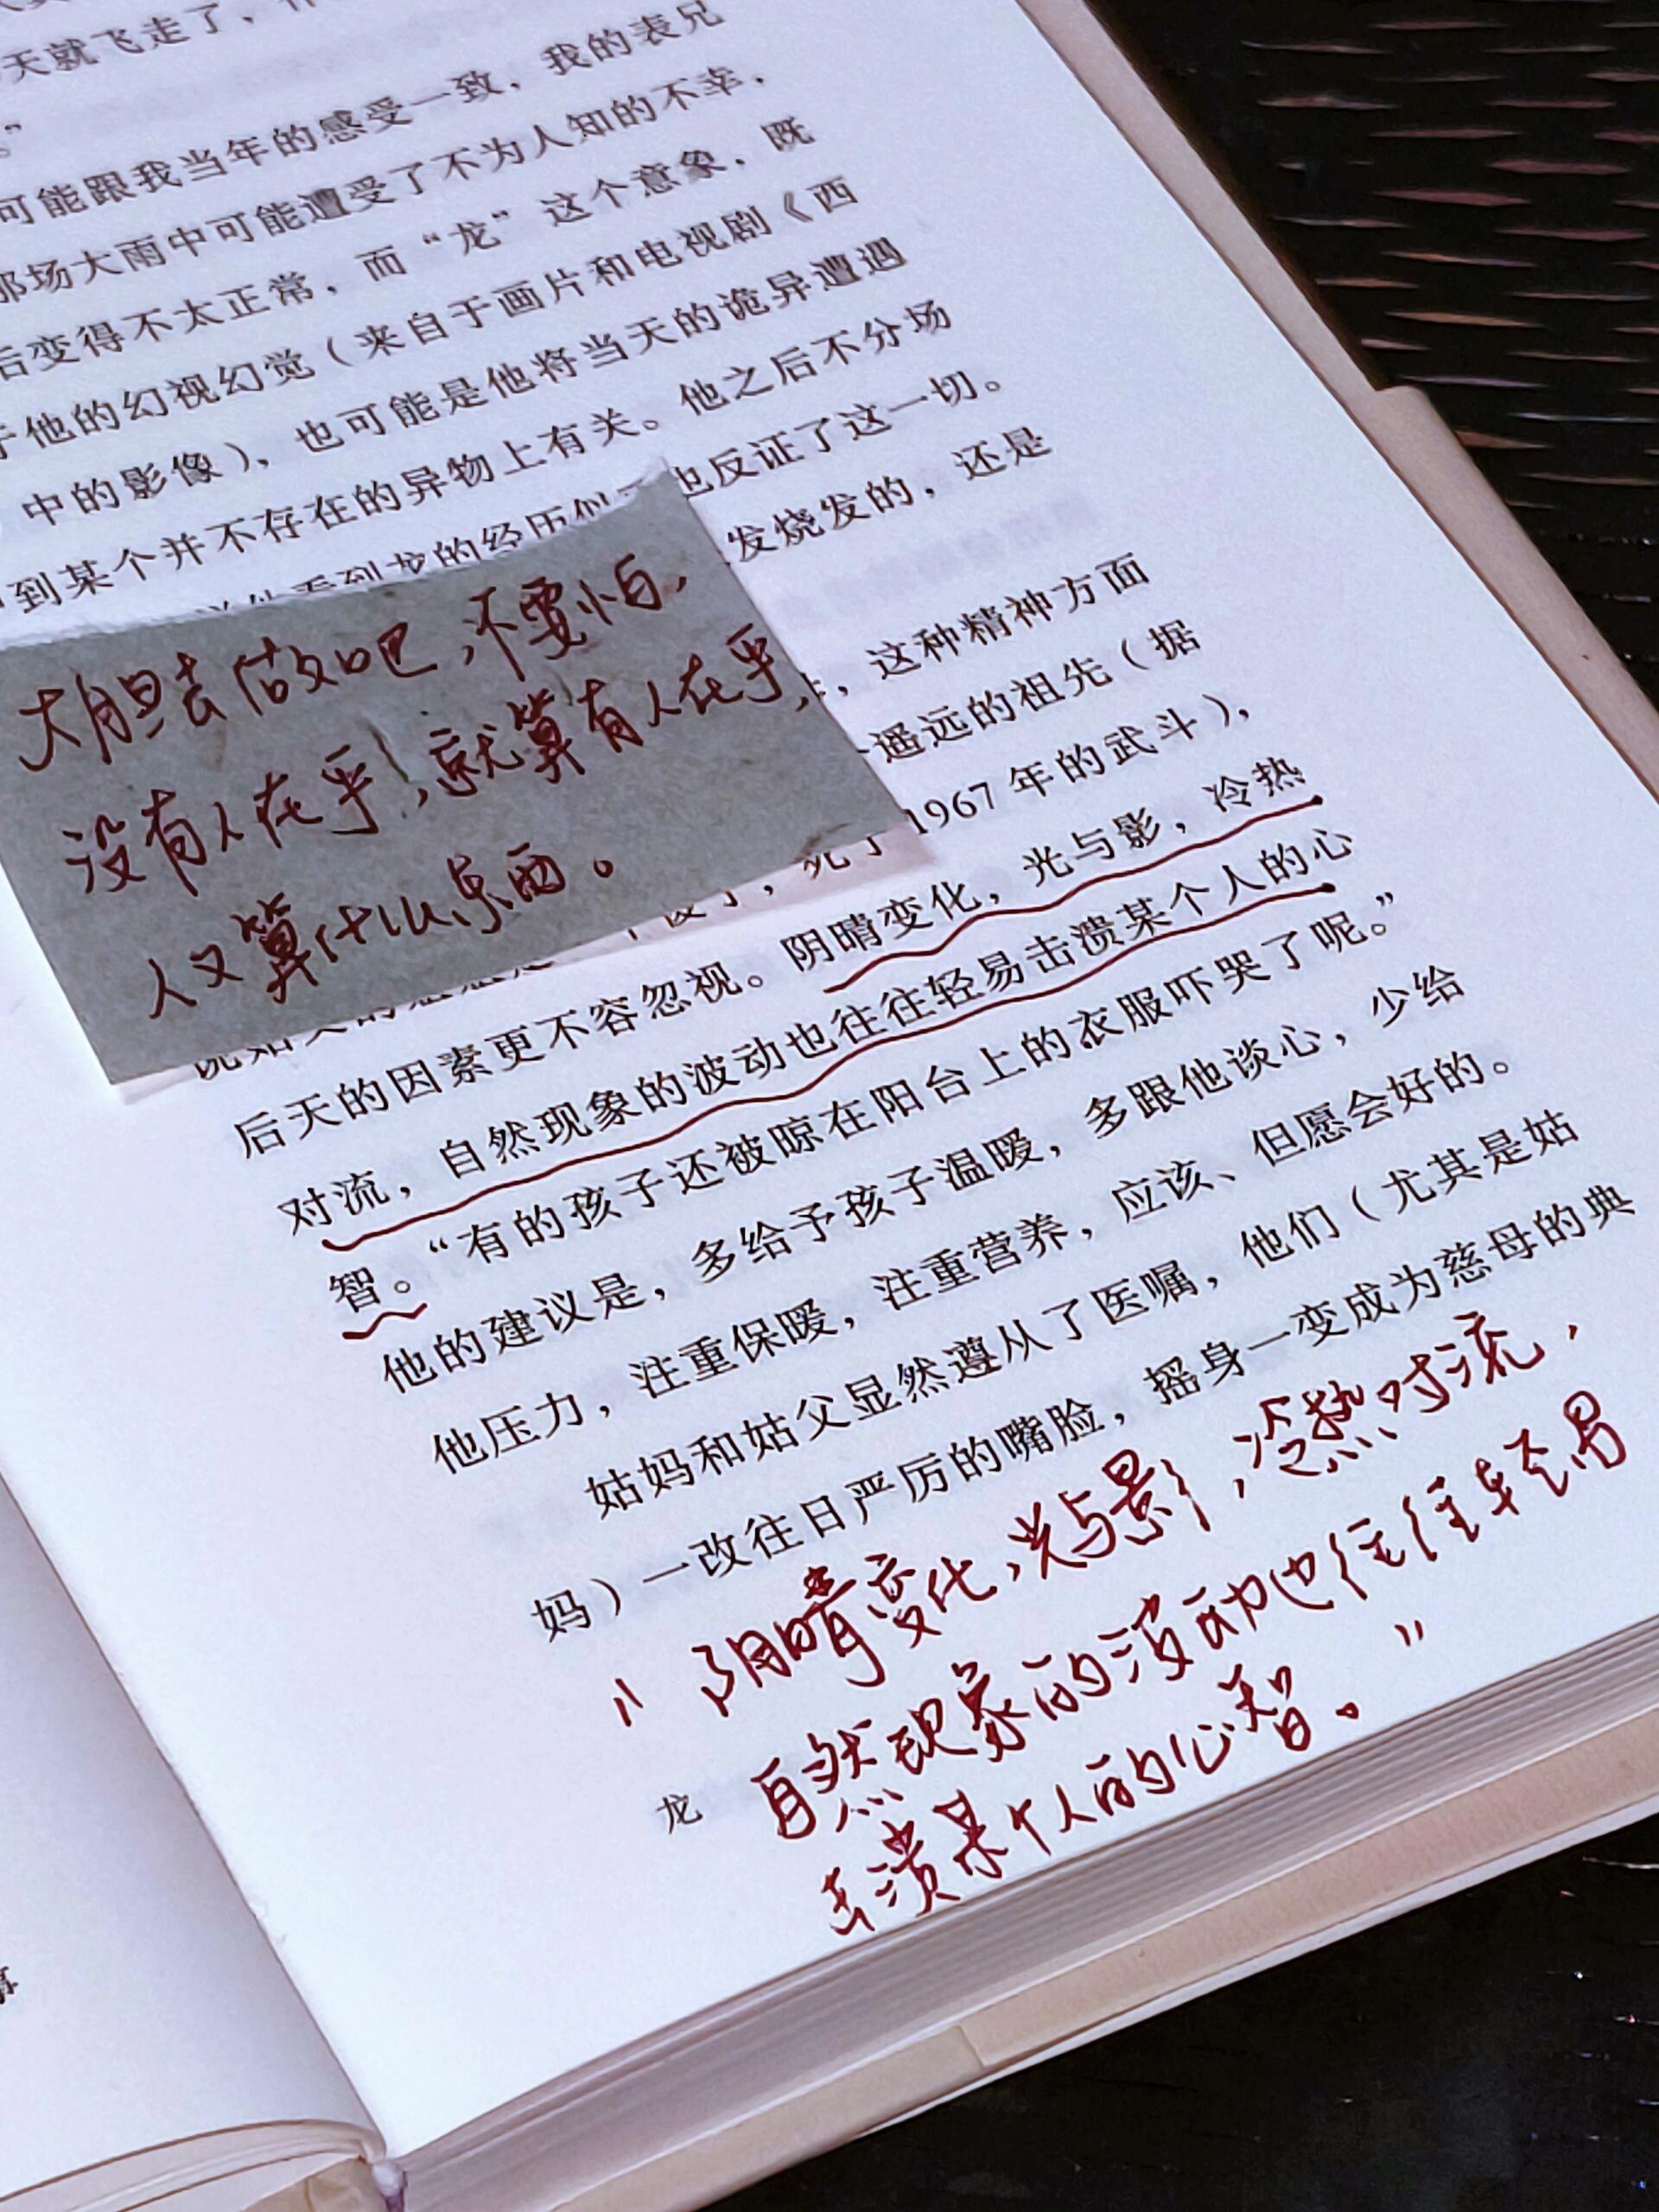 天就飞走了，
。”
可能跟我当年的感受一致，我的表兄
那场大雨中可能遭受了不为人知的不幸，
后变得不太正常，而“龙”这个意象，既
于他的幻视幻觉（来自于画片和电视剧《西
中的影像），也可能是他将当天的诡异遭遇
到某个并不存在的异物上有关。他之后不分场
也反证了这一切。
发烧发的，还是
，这种精神方面
遥远的祖先（据
1967年的武斗），
后天的因素更不容忽视。阴晴变化，光与影，冷热
对流，自然现象的波动也往往轻易击溃某个人的心
智。“有的孩子还被晾在阳台上的衣服吓哭了呢。”
他的建议是，多给予孩子温暖，多跟他谈心，少给
他压力，注重保暖，注重营养，应该、但愿会好的。
姑妈和姑父显然遵从了医嘱，他们（尤其是姑
妈）一改往日严厉的嘴脸，摇身一变成为慈母的典
大胆去做吧，不要怕，
没有人在乎，就算有人在乎，
人又算什么东西。
“阴晴变化，光与影，冷热对流，
自然现象的波动也往往轻易
击溃某个人的心智。”
龙